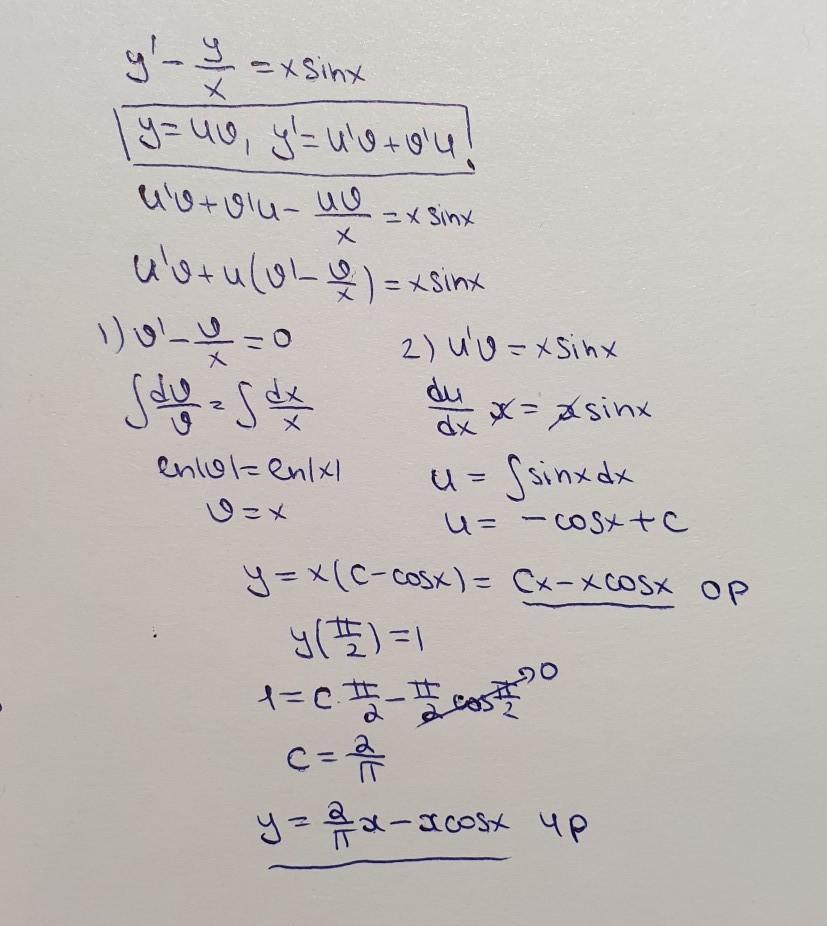 y' - y/x = x sinx
y = uv, y' = u'v + v'u !
u'v + v'u - uv/x = x sinx
u'v + u(v' - v/x) = x sinx
1) v' - v/x = 0
∫ dv/v = ∫ dx/x
ln|v| = ln|x|
v = x
2) u'v = x sinx
du/dx x = x sinx
u = ∫ sinx dx
u = - cosx + c
y = x(c - cosx) = cx - x cosx ор
y(π/2) = 1
1 = c · π/2 - π/2 cos π/2 → 0
c = 2/π
y = 2/π x - x cosx чр